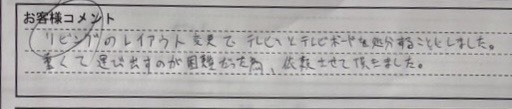 お客様コメント
リビングのレイアウト変更で テレビとテレビボードを処分することにしました。
重くて 運び出すのが困難だった為、依頼させて頂きました。